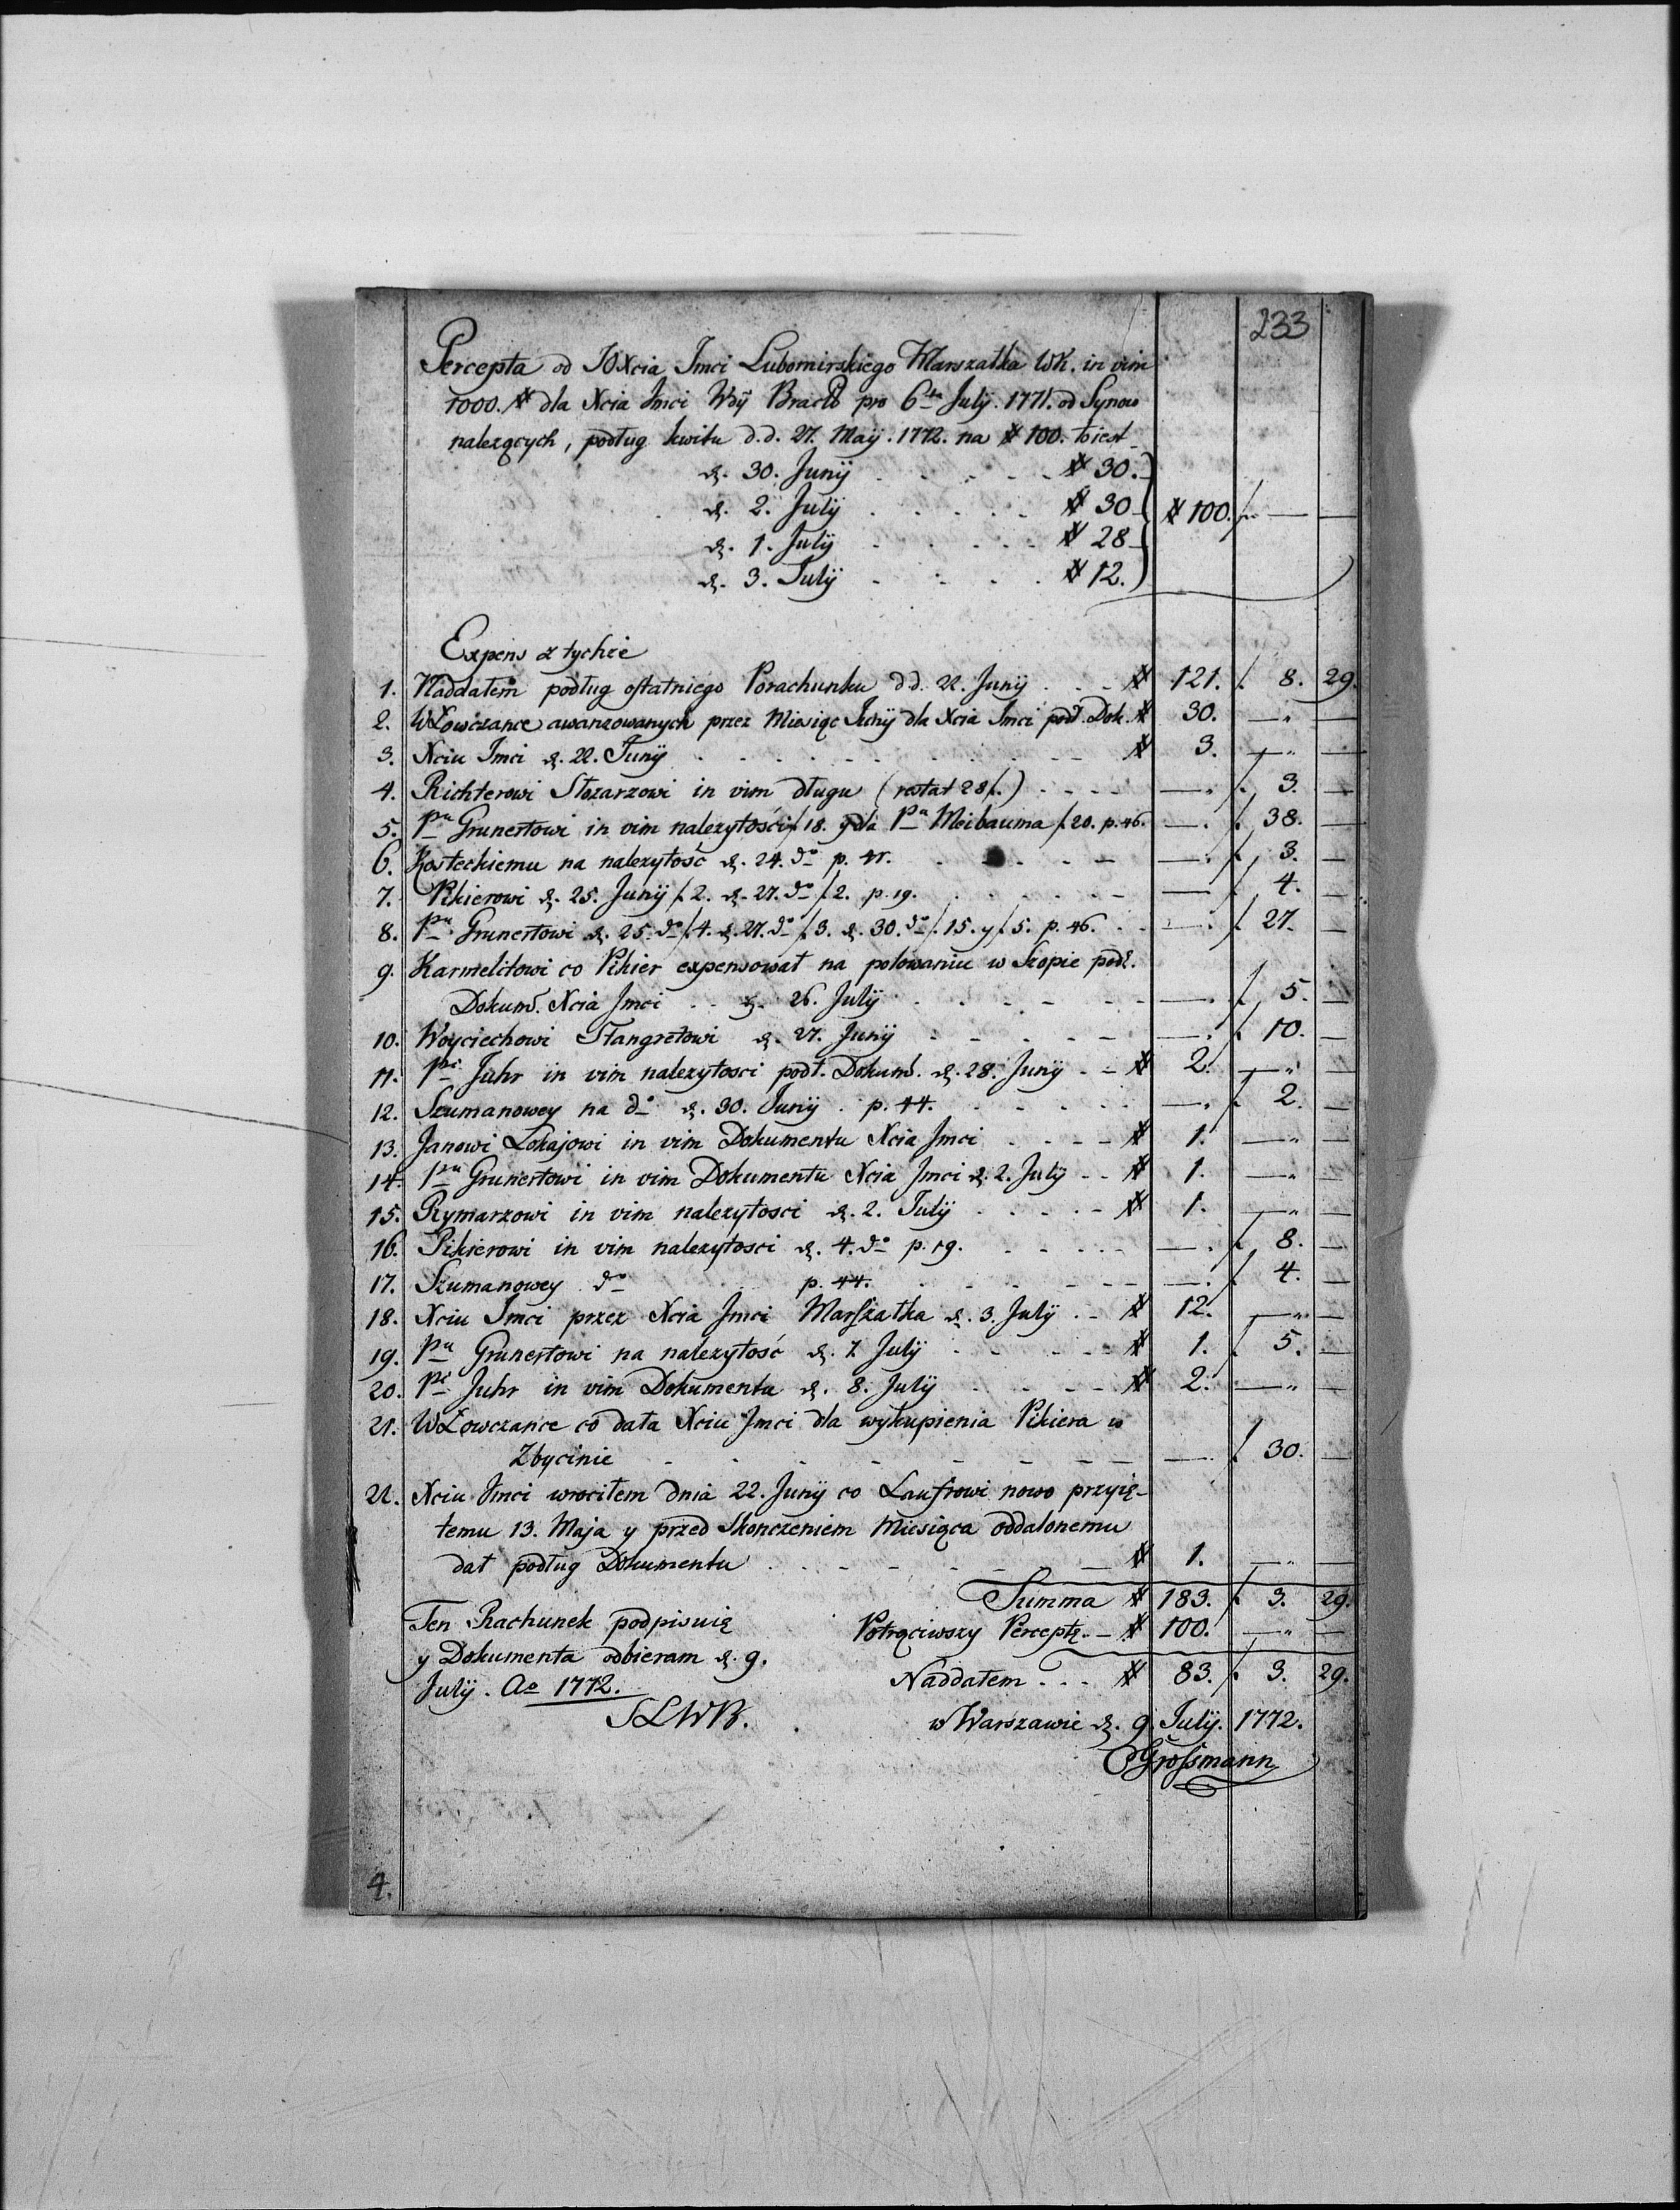 233
Percepta od JOXcia Imci Lubomirskiego Marszałka WK. in vim
1000. # dla Xcia Imci Wdy Bracł pro 6ta July. 1771. od Synow
nalezących, podług kwitu d.d. 27. Maij. 1772. na # 100. to iest
d. 30. Junij - - - # 30.
d. 2. Julij - - - # 30 # 100. f. — —
d. 1. Julij - - - # 28
d. 3. Julij - - - # 12.
Expens z tychże
1. Naddałem podług ostatniego Porachunku dd. 22. Junij - - # 121. f. 8. 29.
2. WŁowczance awanzowanych przez Miesiąc Junij dla Xcia Imci podł. Dok. # 30. — —
3. Xciu Imci d. 22. Junij - - - # 3. — —
4. Richterowi Stozarzowi in vim długu (restat 28 f.) - - - — f. 3. —
5. Pnu Grunertowi in vim nalezytości f. 18. y dla Pna Meibauma f. 20. p. 46. — f. 38. —
6. Kosteckiemu na nalezytość d. 24. do p. 41. - - - — f. 3. —
7. Pikierowi d. 25. Junij f. 2. d. 27. do f. 2. p. 19. - - - — f. 4. —
8. Pnu Grunertowi d. 25. do f. 4. d. 27. do f. 3. d. 30. do f. 15. y f. 5. p. 46. - - — f. 27. —
9. Karmelitowi co Pikier expensował na polowaniu w Szopie podł.
Dokum. Xcia Imci - - d. 26. Julij - - - — f. 5. —
10. Woyciechowi Stangretowi d. 27. Junij - - - — f. 10. —
11. Pni Juhr in vim nalezytosci podł. Dokum. d. 28. Junij - - # 2. — —
12. Szumanowey na do d. 30. Junij . p. 44. - - - — f. 2. —
13. Janowi Lokajowi in vim Dokumentu Xcia Imci - - - # 1. — —
14. Pnu Grunertowi in vim Dokumentu Xcia Imci d. 2. Julij - - # 1. — —
15. Rymarzowi in vim nalezytosci d. 2. Julij - - - # 1. — —
16. Pikierowi in vim nalezytosci d. 4. do p. 19. - - - — f. 8. —
17. Szumanowey do p. 44. - - - — f. 4. —
18. Xciu Imci przez Xcia Imci Marszałka d. 3. Julij - - # 12. — —
19. Pnu Grunertowi na nalezytość d. 7. Julij - - - # 1. f. 5. —
20. Pni Juhr in vim Dokumentu d. 8. Julij - - - # 2. — —
21. WŁowczance co dała Xciu Imci dla wykupienia Pikiera w
Zbycinie - - - — f. 30. —
22. Xciu Imci wrociłem dnia 22. Junij co Laufrowi nowo przyię-
temu 13. Maja y przed Skonczeniem Miesiąca oddalonemu
dał podług Dokumentu - - - # 1. — —
Summa # 183. f. 3. 29.
Ten Rachunek podpisuię
Potrąciwszy Perceptę - # 100. — —
y Dokumenta odbieram d. 9.
Naddałem . . . # 83. f. 3. 29.
Julij. Ao 1772.
SLWB.
w Warszawie d. 9. Julij. 1772.
Grossmann
4.